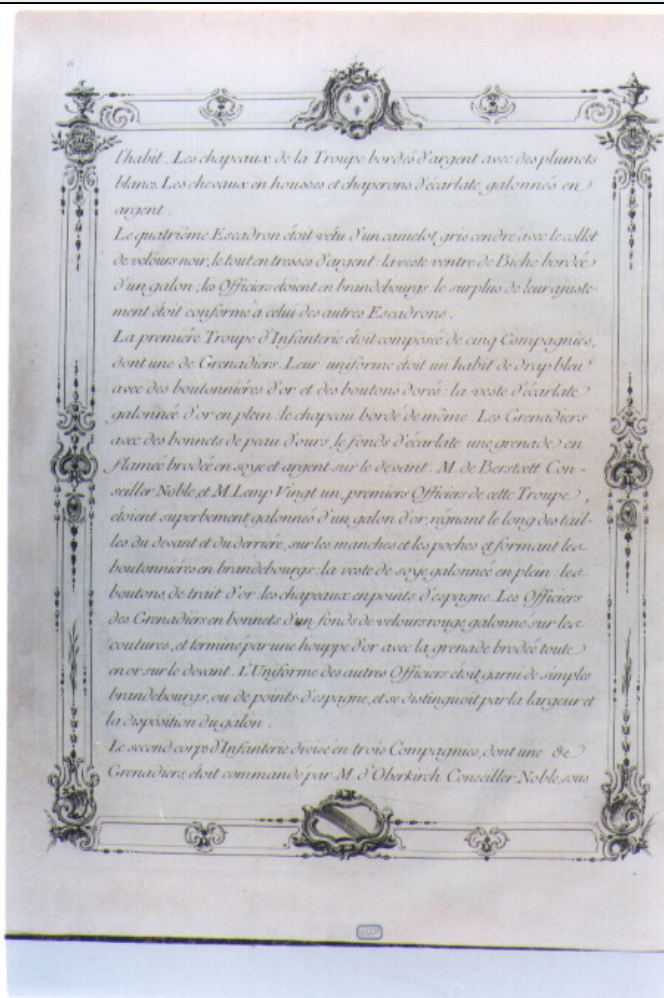 l'habit. Les chapeaux de la Troupe bordés d'argent avec des plumets
blancs. Les chevaux en housses et chaperons d'écarlate, galonnés en
argent.
Le quatrième Escadron étoit vetu d'un camelot, gris cendré avec le collet
de velours noir, le tout en tresses d'argent: la veste ventre de Biche bordée
d'un galon; les Officiers étoient en brandebourgs le surplus de leur ajuste-
ment étoit conforme à celui des autres Escadrons.
La première Troupe d'Infanterie étoit composée de cinq Compagnies,
dont une de Grenadiers. Leur uniforme étoit un habit de drap bleu
avec des boutonnières d'or et des boutons dorés: la veste d'écarlate
galonnée d'or en plein: le chapeau bordé de même. Les Grenadiers
avec des bonnets de peau d'ours, le fonds d'écarlate une grenade en
flamée brodée en soye et argent sur le devant. M. de Berstett Con-
seiller Noble, et M. Lemp Vingt un, premiers Officiers de cette Troupe,
étoient superbement galonnés d'un galon d'or, régnant le long des tail-
les du devant et du derrière, sur les manches et les poches et formant les
boutonnières en brandebourgs: la veste de soye galonnée en plein: les
boutons de trait d'or: les chapeaux en points d'espagne. Les Officiers
des Grenadiers en bonnets d'un fonds de velours rouge galonné sur les
coutures, et terminé par une houppe d'or avec la grenade brodée toute
en or sur le devant. L'Uniforme des autres Officiers étoit garni de simples
brandebourgs, ou de points d'espagne, et se distinguoit par la largeur et
la disposition du galon.
Le second corps d'Infanterie divisé en trois Compagnies, dont une de
Grenadiers, étoit commandé par M. d'Oberkirch Conseiller Noble, sous